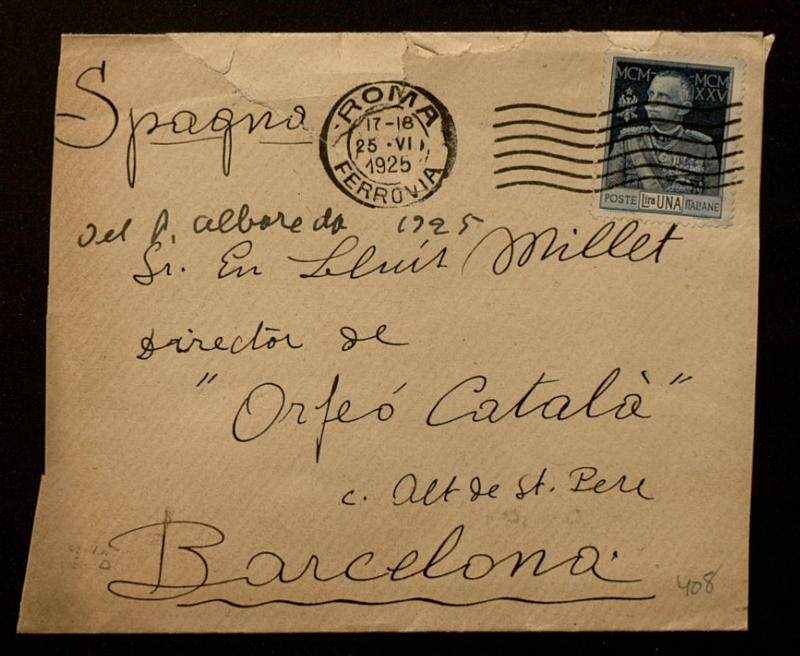 Spagna
ROMA
17-18
25 · VI
1925
FERROVIA
MCM- -MCM
XXV
POSTE Lira UNA ITALIANE
Del P. Alboreda 1925
Sr. En Lluís Millet
Director de
"Orfeó Català"
c. Alt de St. Pere
Barcelona
408